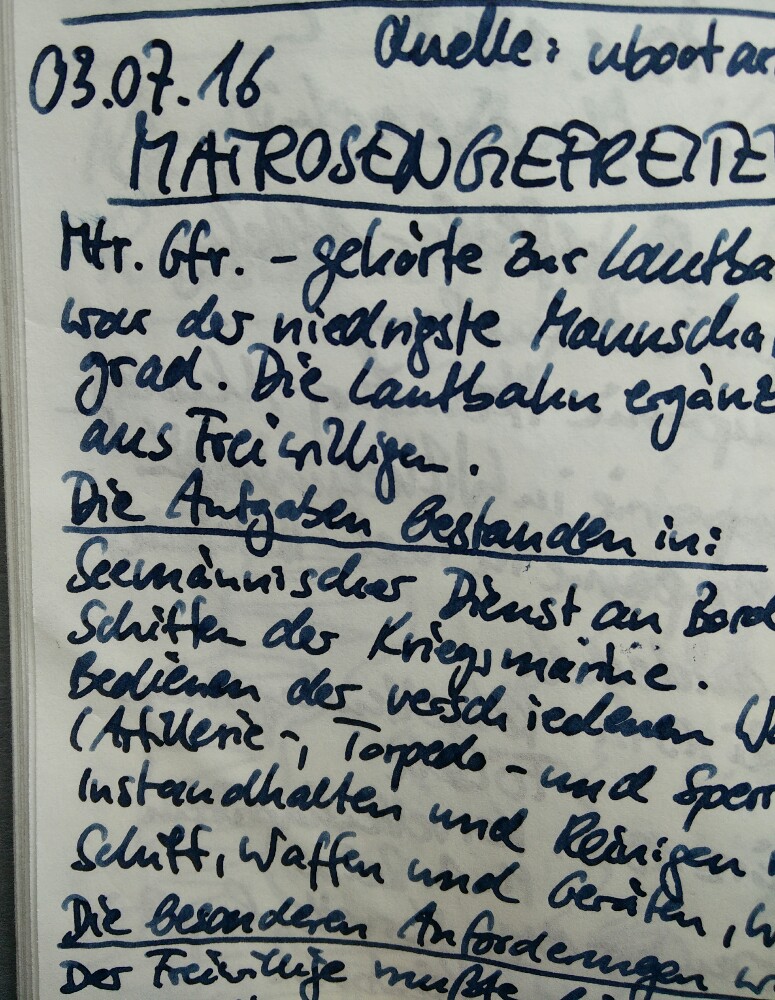 Quelle: uboot
03.07.16
MATROSENGEFREITE
Mtr. Gfr. - gehörte zur Laufba
war der niedrigste Mannscha
grad. Die Laufbahn ergänz
aus Freiwilligen.
Die Aufgaben bestanden in:
Seemännischer Dienst an Bord
Schiffen der Kriegsmarine.
Bedienen der verschiedenen W
(Artillerie-, Torpedo- und Sperr
Instandhalten und Reinigen
Schiff, Waffen und Geräten,
Die besonderen Anforderungen
Der Freiwillige mußte